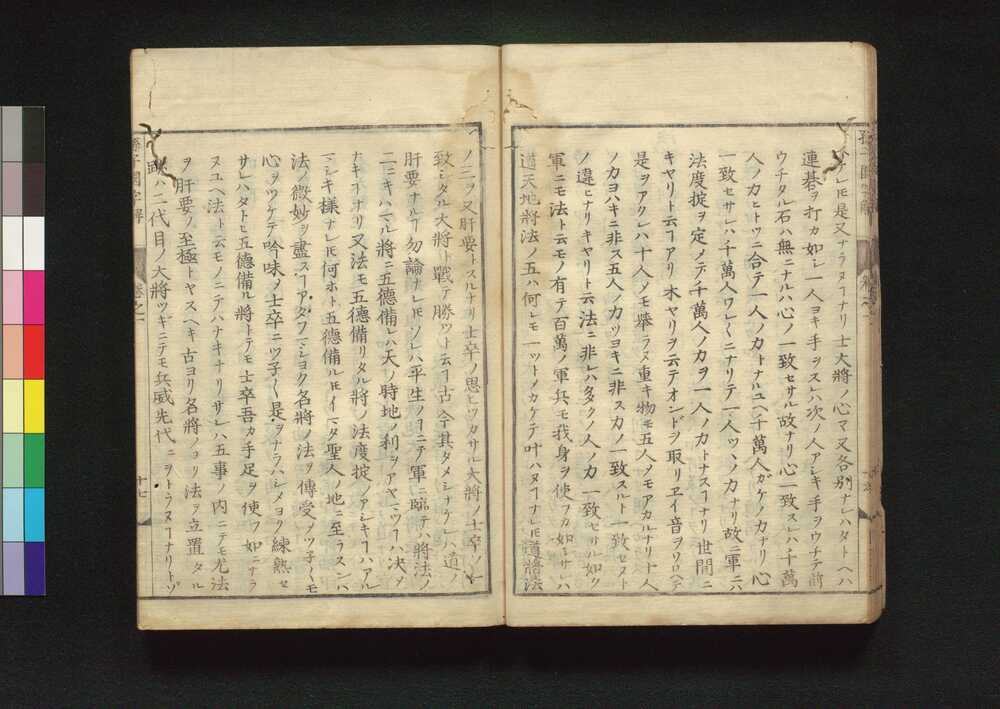 孫子國字解 卷之一
ナレヒ是又ナラヌヿナリ士大將ノ心マ又各別ナレハタトヘハ
連碁ヲ打カ如シ一人ヨキ手ヲスレハ次ノ人アシキ手ヲウチテ前
ウチタル石ハ無ニナルハ心ノ一致セサル故ナリ心一致スレハ千萬
人ノカヒトツニ合テ一人ノカトナルユヘ千萬人ガケノカナリ心
一致セサレハ千萬人ワレ〳〵ニナリテ一人ツヽノカナリ故ニ軍ニハ
法度掟ヲ定メテ千萬人ノカヲ一人ノカトナスヿナリ世間ニ
キヤリト云ヿアリ木ヤリヲ云テオンドヲ取リヱイ音ヲワロヘテ
是ヲアクレハ十人ノモ舉ラヌ重キ物モ五人ノモアカルナリ十人
ノカヨハキニ非ス五人ノカツヨキニ非スカノ一致スルト一致セスト
ノ違ヒナリキヤリト云法ニ非レハ多クノ人ノカ一致セサル如ク
軍ニモ法ト云モノ有テ百萬ノ軍兵モ我身ヲ使フカ如シサレハ
道天地將法ノ五ハ何レモ一ツトメカケテ叶ハヌヿナレヒ道將法
ノ三ヲ又肝要トスルナリ士卒ノ思ヒツカサル大將ノ士卒ノ心
致シタル大將ト戰テ勝ツト云ヿ古今其タメシナケレハ道ノ
肝要ナルヿ勿論ナレヒソレハ平生ノヿニテ軍ニ臨テハ將法ノ
二ニキハマル將ニ五德備レハ天ノ時地ノ利ヲアヤマツヿハ決メ
ナキヿナリ又法モ五德備リタル將ノ法度掟ノアシキヿハアル
マシキ樣ナレヒ何ホト五德備ルヒイマタ聖人ノ地ニ至ラスンハ
法ノ微妙ヲ盡スヿアタフマシヨク名將ノ法ヲ傳受メツ子〳〵モ
心ヲツケテ吟味メ士卒ニツ子〳〵是ヲナラハシメヨク練熟セ
サレハタトヒ五德備ル將トテモ士卒吾カ手足ヲ使フ如ニナラ
ヌユヘ法ト云モノニテハナキナリサレハ五事ノ內ニテモ尤法
ヲ肝要ノ至極トヤスヘキ古ヨリ名將ノコリ法ヲ立置タル
跡ハ二代目ノ大將ツギニテモ兵威先代ニヲトラヌヿナリトゾ
孫子國字解 卷之一 十七